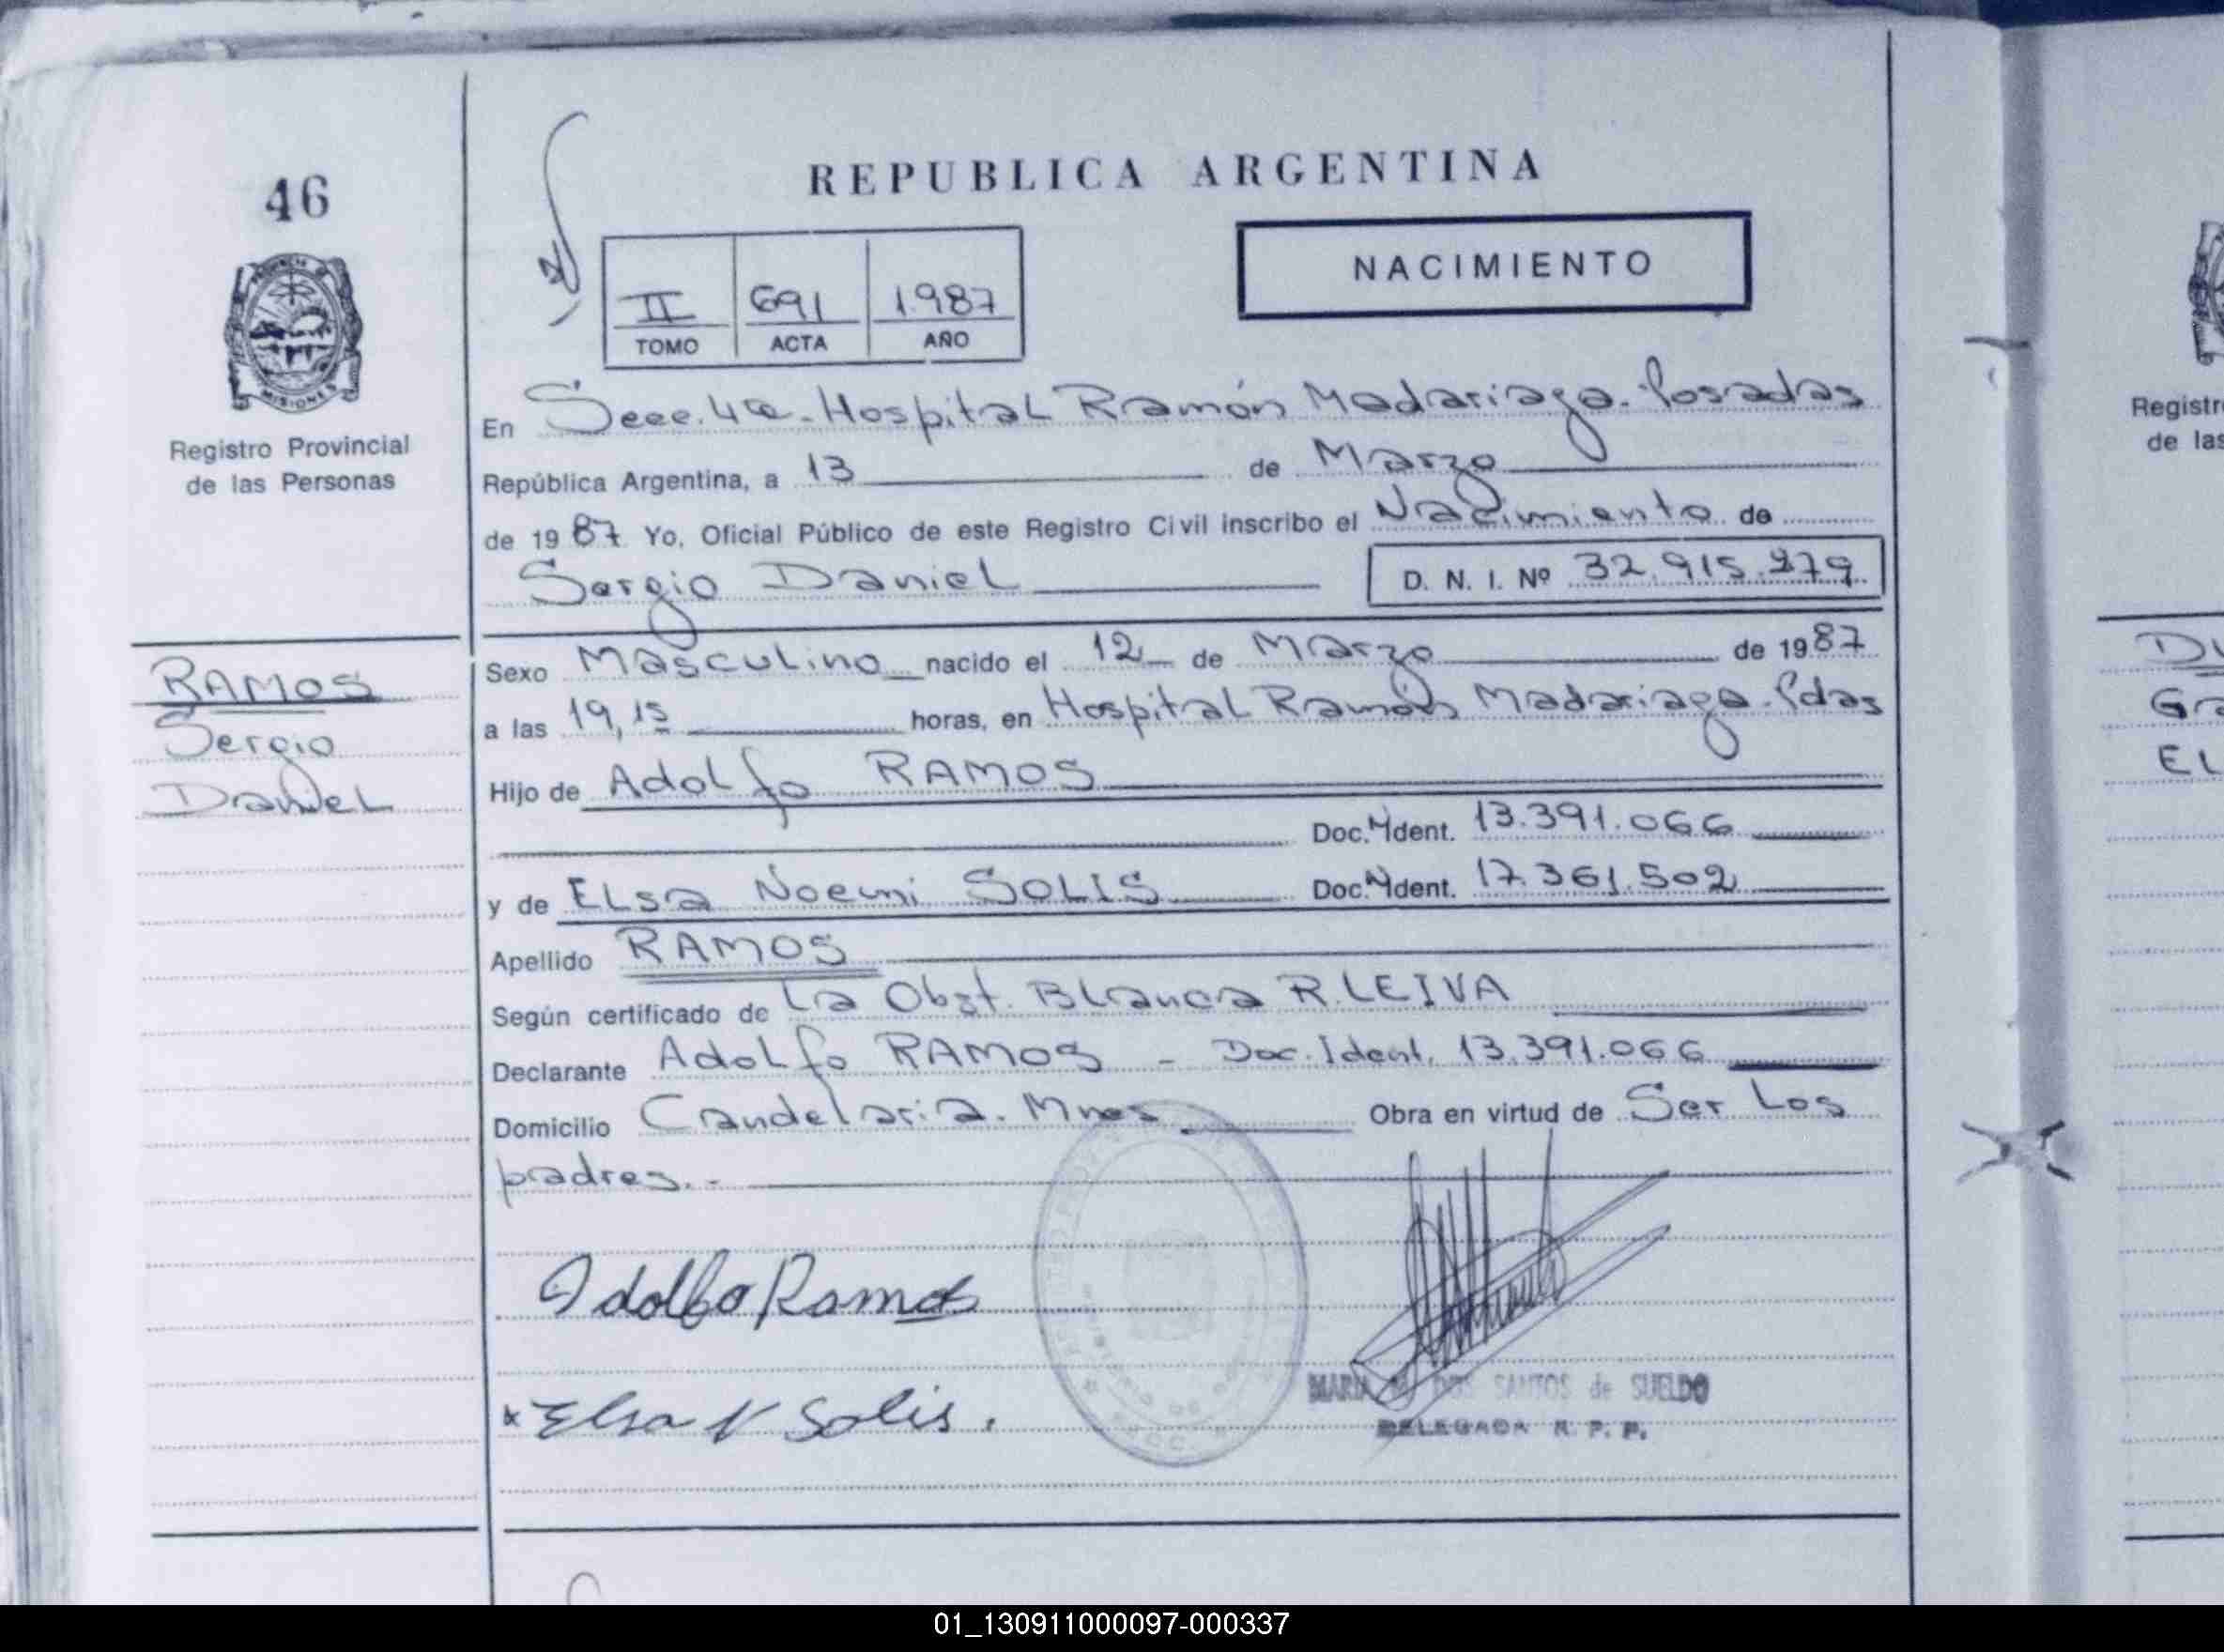 46
PROVINCIA DE
MISIONES
Registro Provincial
de las Personas
REPUBLICA ARGENTINA
NACIMIENTO
II 691 1.987
TOMO ACTA AÑO
En Secc. 4ta - Hospital Ramón Madariaga - Posadas
República Argentina, a 13 de Marzo
de 1987 Yo, Oficial Público de este Registro Civil inscribo el Nacimiento de
Sergio Daniel D. N. I. Nº 32.915.279
RAMOS
Sergio
Daniel
Sexo Masculino nacido el 12 de Marzo de 1987
a las 19,15 horas, en Hospital Ramón Madariaga - Pdas
Hijo de Adolfo RAMOS
Doc. Ident. 13.391.066
y de ELsa Noemi SOLIS Doc. Ident. 17.361.502
Apellido RAMOS
Según certificado de La Obst. Blanca R. LEIVA
Declarante Adolfo RAMOS - Doc. Ident. 13.391.066
Domicilio Candelaria. Mnes Obra en virtud de Ser Los
padres.-
Adolfo Ramos
x Elsa N Solis.
MARIA DOS SANTOS de SUELDO
DELEGADA R. P. P.
Registr
de las
EL
01_130911000097-000337